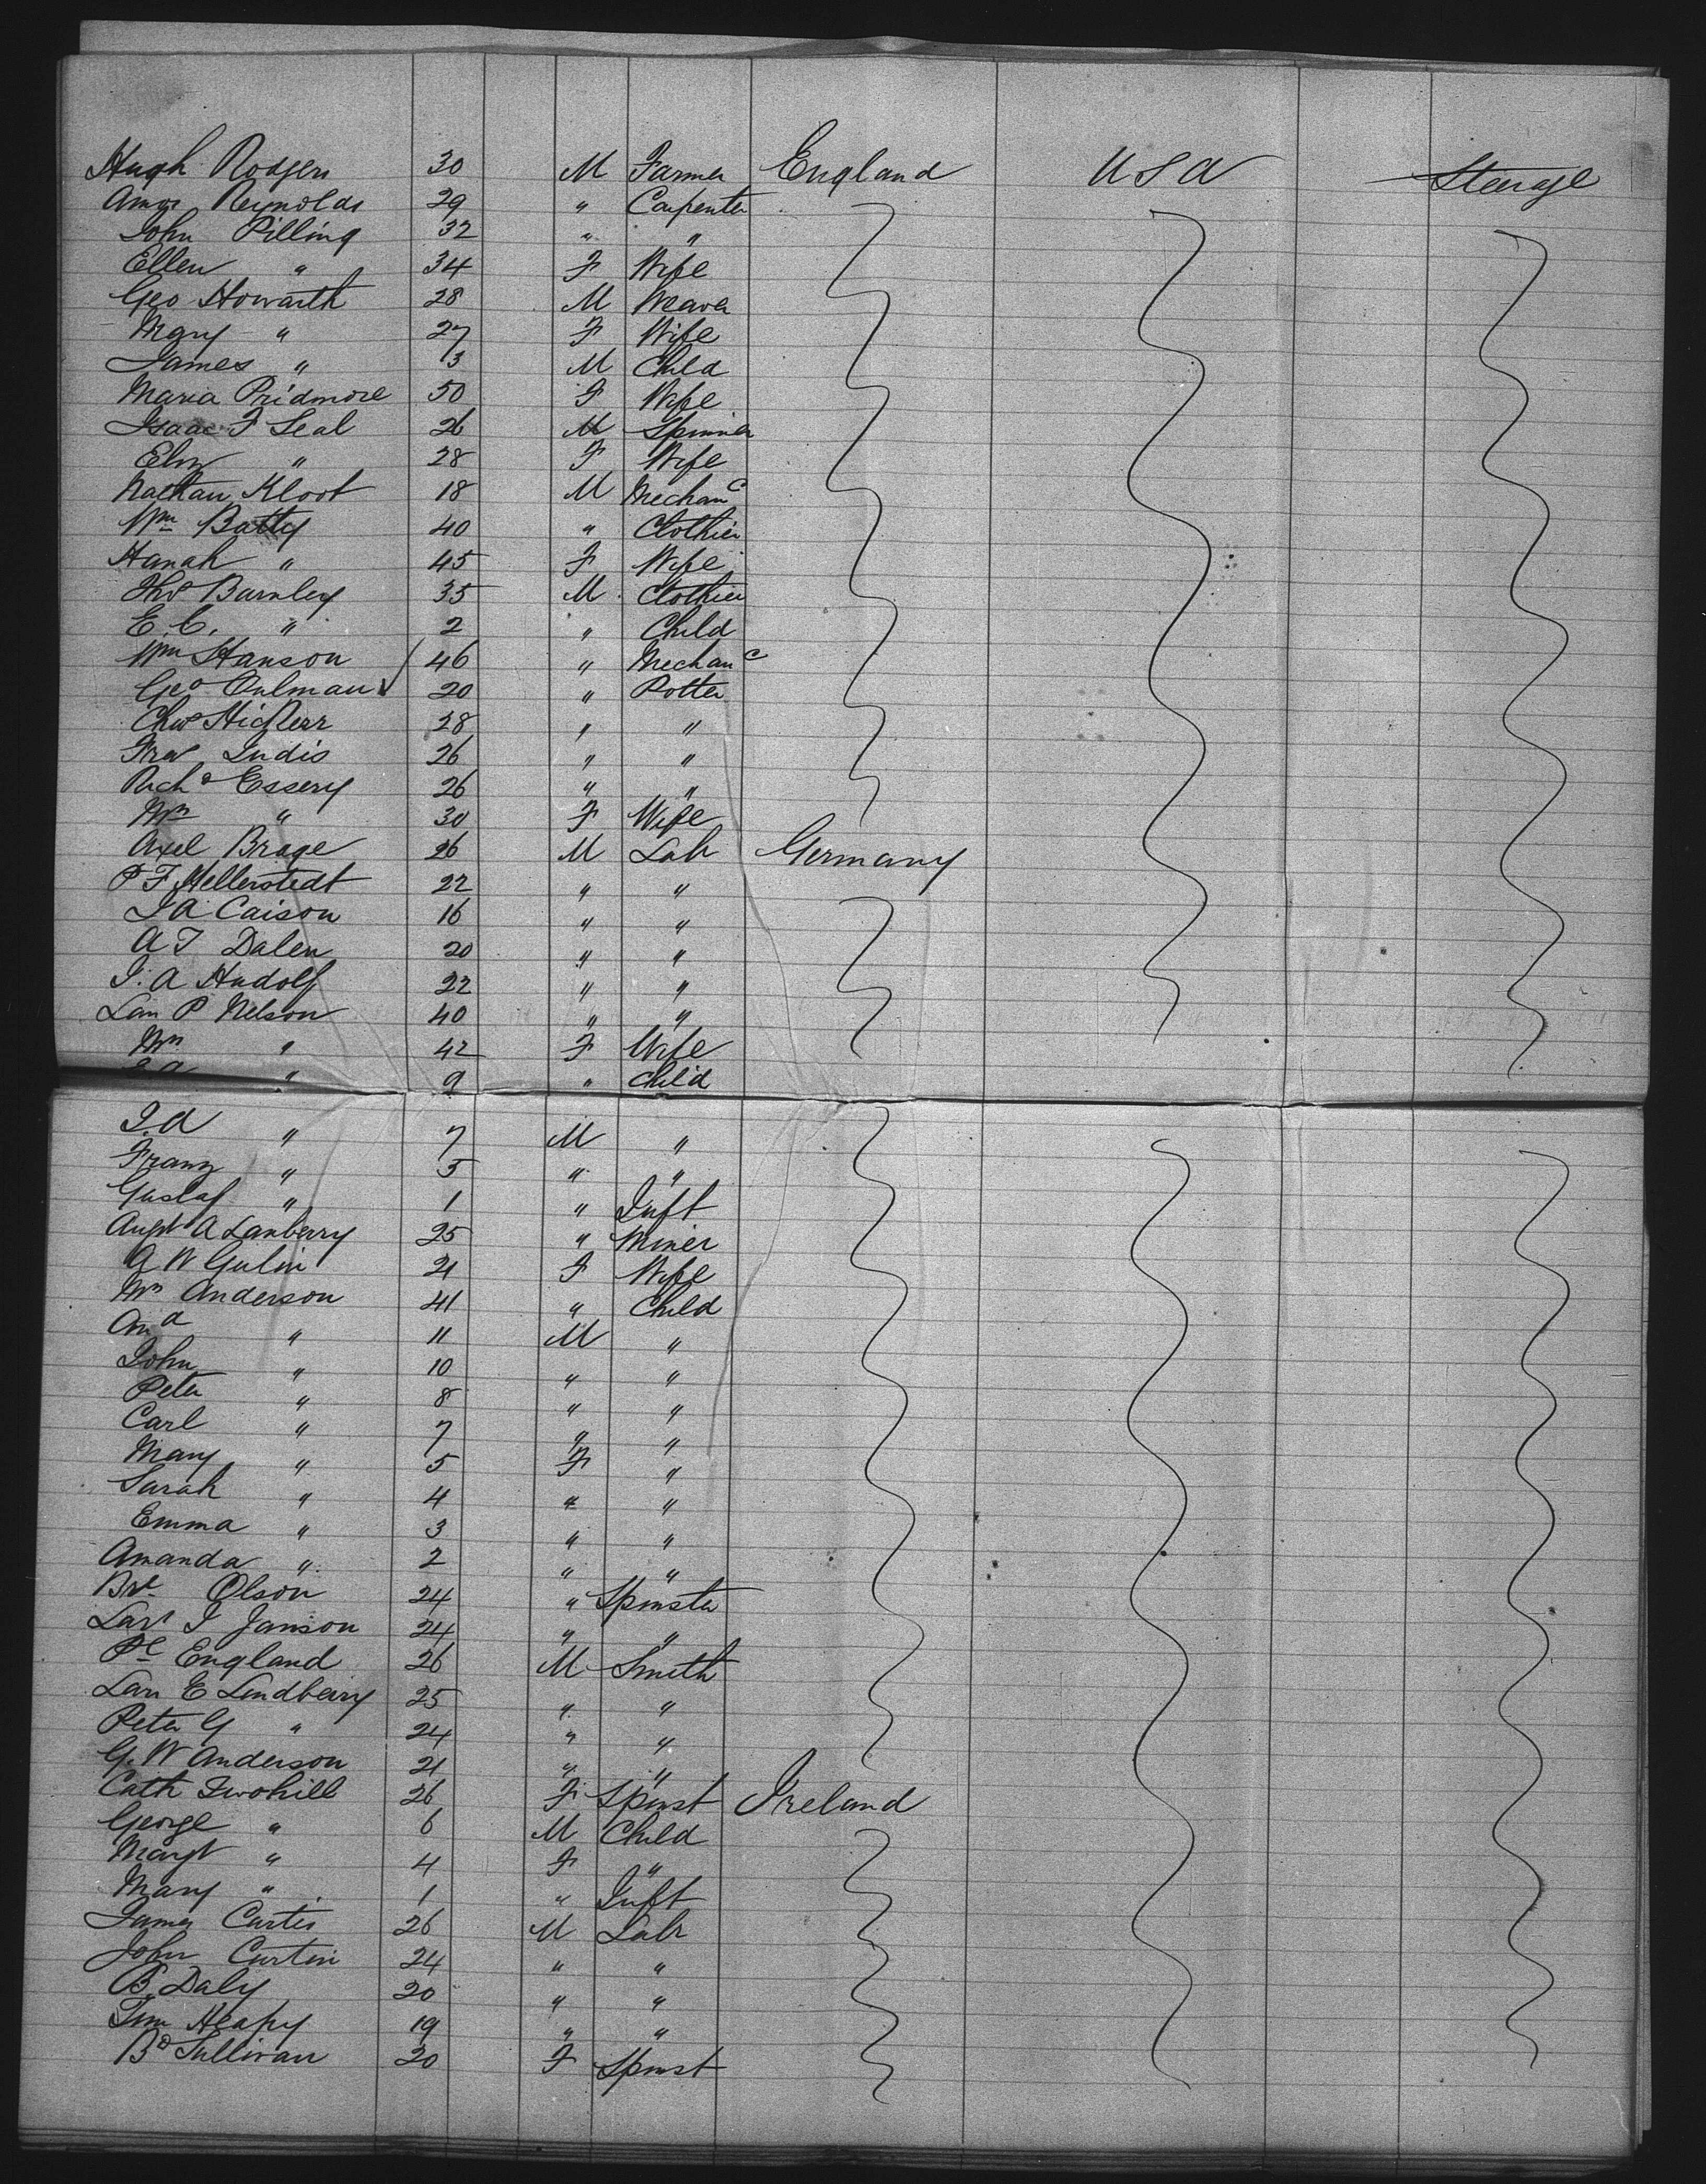 Hugh Rodgers 30 M Farmer England USA Steerage
Amos Reynolds 29 " Carpenter
John Pilling 32 " "
Ellen " 34 F Wife
Geo Howarth 28 M Weaver
Mary " 27 F Wife
James " 3 M Child
Maria Pridmore 50 F Wife
Isaac F Seal 26 M Spinner
Eliz " 28 F Wife
Nathan Kloot 18 M Mechanc
Wm Batty 40 " Clothier
Hanah " 45 F Wife
Thos Barnley 35 M Clothier
E. C. " 2 " Child
Wm Hanson 46 " Mechanc
Geo Oulman 20 " Potter
Chas 28 " "
Fred Indis 26 " "
Richd Essery 26 " "
Mrs " 30 F Wife
Axel Brage 26 M Labr Germany
P F Hellerstedt 22 " "
J A Caison 16 " "
A J Dalen 20 " "
J. A Hudolf 22 " "
Lars P Nelson 40 " "
Mrs " 42 F Wife
" 9 " Child
J. A " 7 M "
Franz " 5 " "
Gustaf " 1 " Inft
Augst A Lanberry 25 " Miner
G W Gulin 21 F Wife
Mrs Anderson 41 " Child
And " 11 M "
John " 10 " "
Peter " 8 " "
Carl " 7 " "
Mary " 5 F "
Sarah " 4 " "
Emma " 3 " "
Amanda " 2 " "
Olson 24 " Spinster
Lars J Janson 24 " "
England 26 M Smith
Lars E Lindberry 25 " "
Peter G " 24 " "
G. W Anderson 21 " "
Cath Twohill 26 F Spinst Ireland
George " 6 M Child
Margt " 4 F "
Mary " 1 " Inft
James Curtis 26 M Labr
John Curtin 24 " "
B. Daly 20 " "
Tim Heapy 19 " "
Bd Sullivan 20 F Spinst